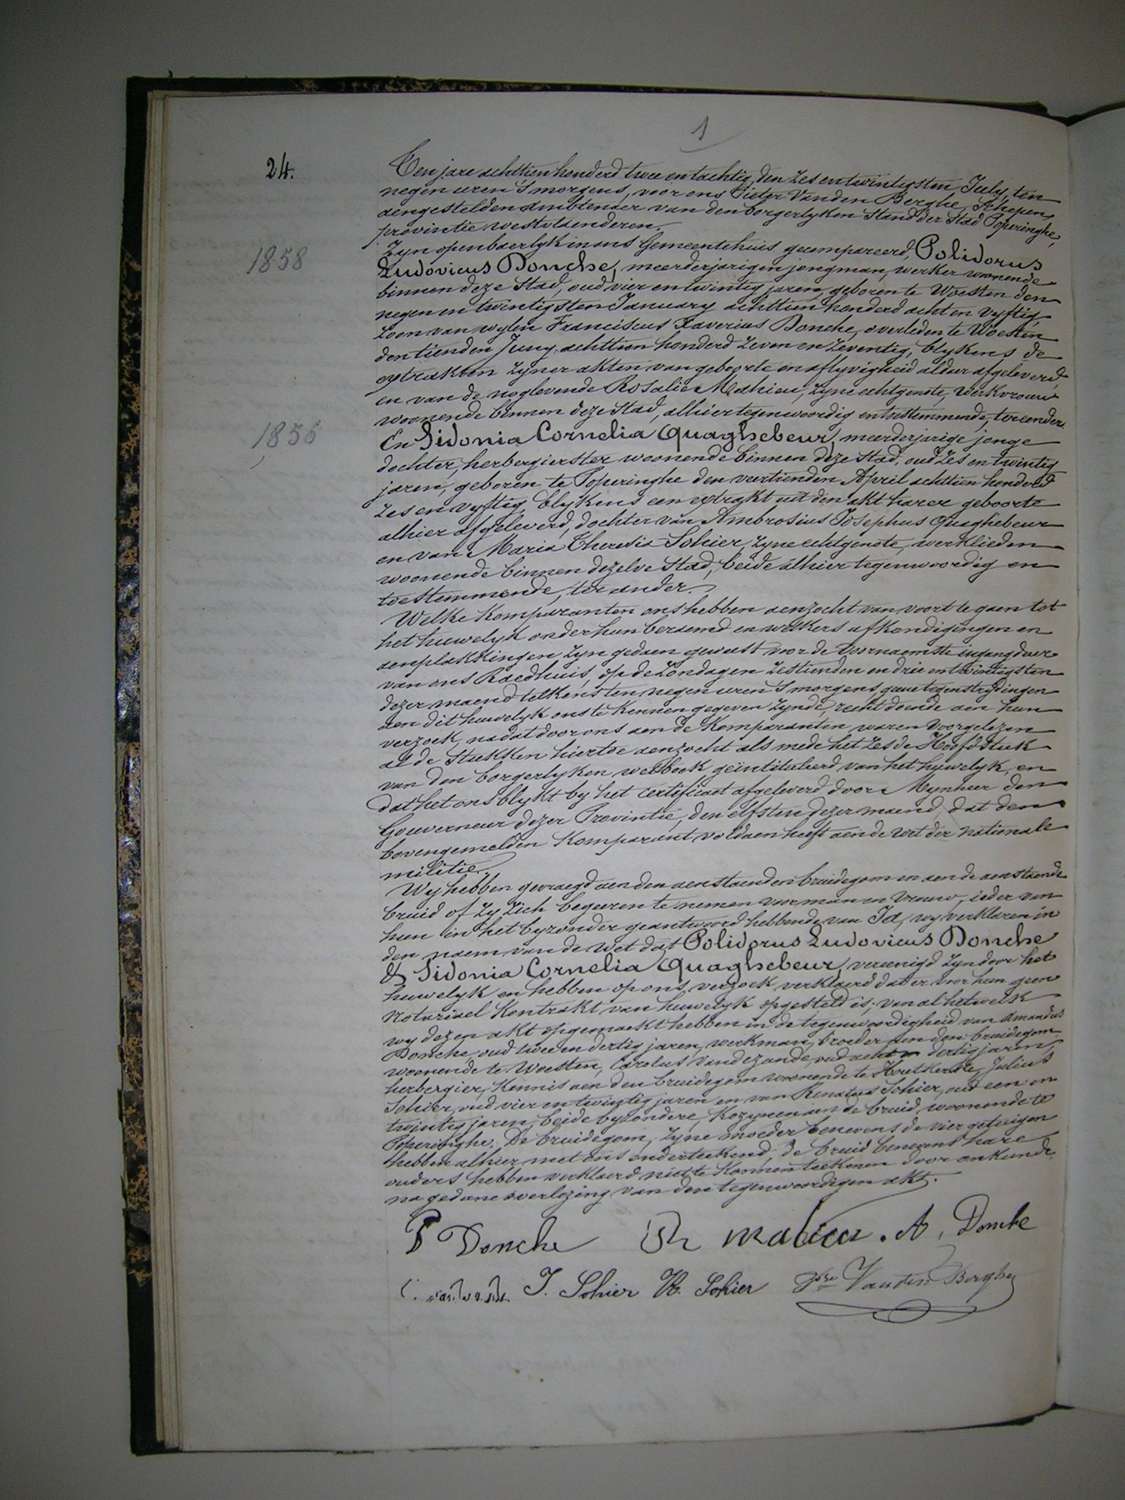 1
24.
Ten jare achttien honderd twee en tachtig, den zes en twintigsten July, ten
negen uren 's morgens, voor ons Pieter Vanden Berghe, Schepen,
aengestelden ambtenaer van den borgerlyken Stand der Stad Poperinghe,
provintie Westvlaenderen.
1858
Zyn openbaerlyk in ons Gemeentehuis gecompareerd, Polidorus
Ludovicus Donche, meerderjarigen jongman, werker woonende
binnen deze Stad, oud vier en twintig jaren, geboren te Woesten den
negen en twintigsten January achttien honderd acht en vyftig,
zoon van wylen Franciscus Xaverius Donche, overleden te Woesten
den tienden Juny achttien honderd zeven en zeventig, blykens de
extrakten zyner akten van geboorte en aflyvigheid aldaer afgeleverd,
en van de noglevende Rosalie Mathieu, zyne echtgenote, werkvrouw
woonende binnen deze Stad, alhier tegenwoordig en toestemmende, ter eender.
1856
En Sidonia Cornelia Quaghebeur, meerderjarige jonge
dochter, herbergierster woonende binnen deze Stad, oud zes en twintig
jaren, geboren te Poperinghe den veertienden April achttien honderd
zes en vyftig, blykens een extrakt uit den akt harer geboorte
alhier afgeleverd, dochter van Ambrosius Josephus Quaghebeur
en van Maria Theresia Sohier, zyne echtgenote, werklieden
woonende binnen dezelve Stad, beide alhier tegenwoordig en
toestemmende, ter ander.
Welke komparanten ons hebben aenzocht van voort te gaen tot
het huwelyk onder hun beraemd en welkers afkondigingen en
aenplakkingen zyn gedaen geweest voor de voornaemste ingangdeur
van ons Raedhuis, op de zondagen zestienden en drie en twintigsten
dezer maend telkens ten negen uren 's morgens geene tegenstrydingen
aen dit huwelyk ons te kennen gegeven zynde, recht doende aen hun
verzoek, nadat door ons aen de komparanten waren voorgelezen
al de Stukken hiertoe aenzocht als mede het zesde Hoofdstuk
van den borgerlyken wetboek geïntituleerd, van het huwelyk, en
dat het ons blykt by het certificaet afgeleverd door Mynheer den
Gouverneur dezer Provintie, den elfsten dezer maend, dat den
bovengemelden komparant voldaen heeft aen de wet der nationale
militie.
Wy hebben gevraegd aen den aenstaenden bruidegom en aen de aenstaende
bruid of zy zich begeeren te nemen voor man en vrouw, ieder van
hun in het byzonder geantwoord hebbende van Ja, wy verklaren in
den naem van de wet dat Polidorus Ludovicus Donche
& Sidonia Cornelia Quaghebeur, vereenigd zyn door het
huwelyk en hebben op ons verzoek verklaerd dat er voor hun geen
notariael kontrakt van huwelyk opgesteld is; van al hetwelk
wy dezen akt opgemaekt hebben in de tegenwoordigheid van Amandus
Donche, oud twee en dertig jaren, werkman, broeder aen den bruidegom
woonende te Woesten, Carolus Vandezande, oud acht en dertig jaren,
herbergier, kennis aen den bruidegom woonende te Houtkerke, Julius
Sohier, oud vier en twintig jaren en van Renatus Sohier, oud een en
twintig jaren, beide byzondere, kozynen aen de bruid, woonende te
Poperinghe. De bruidegom, zyne moeder benevens de vier getuigen
hebben alhier met ons onderteekend, de bruid benevens hare
ouders hebben verklaerd niet te kunnen teekenen door onkunde,
na gedane overlezing van den tegenwoordigen akt.
P Donche Th matieu. A, Donche
J. Sohier R. Sohier Vanden Berghe